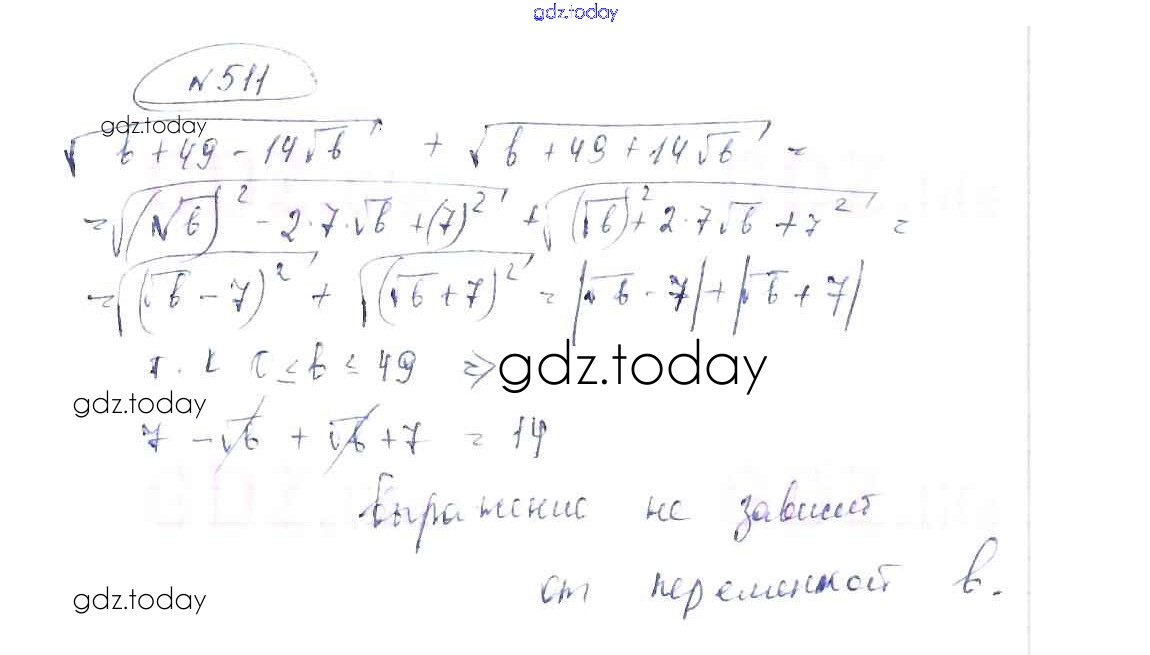 gdz.today
№511
gdz.today
√(b + 49 - 14√b) + √(b + 49 + 14√b) =
= √((√b)² - 2·7·√b + (7)²) + √((√b)² + 2·7√b + 7²) =
= √((√b - 7)²) + √((√b + 7)²) = |√b - 7| + |√b + 7|
т. к ≤ b ≤ 49 => gdz.today
gdz.today
7 - √b + √b + 7 = 14
Выражение не зависит
от переменной b.
gdz.today